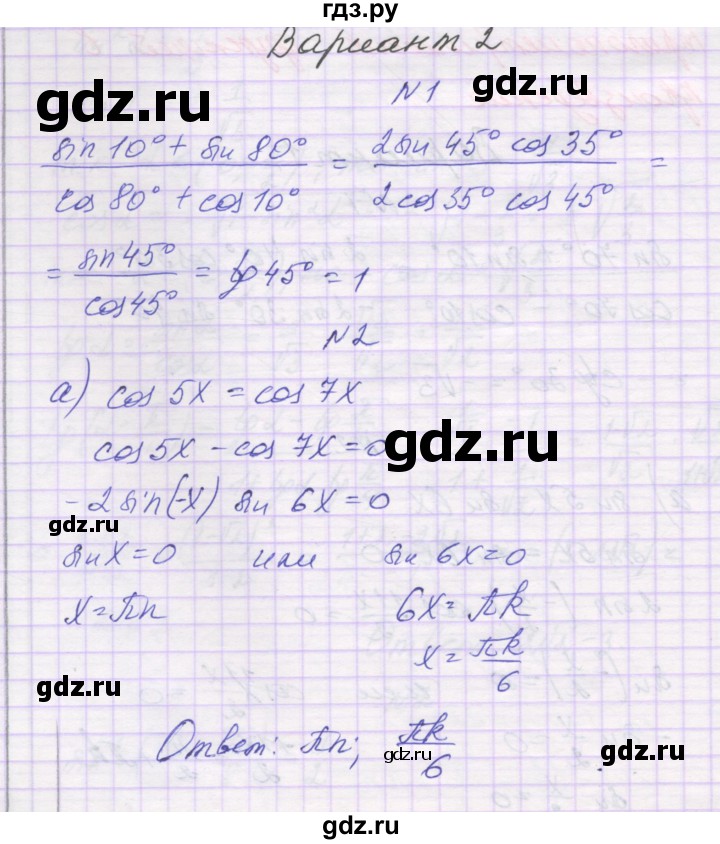 гдз.ру
Вариант 2
gdz.ru
gdz.ru
N1
(sin 10° + sin 80°)/(cos 80° + cos 10°) = (2 sin 45° cos 35°)/(2 cos 35° cos 45°) =
= sin 45°/cos 45° = tg 45° = 1
N2
а) cos 5x = cos 7x
cos 5x - cos 7x = 0
gdz.ru
-2 sin(-x) sin 6x = 0
gdz.ru
sin x = 0 или sin 6x = 0
x = πn 6x = πk
x = πk/6
gdz.ru
Ответ: πn; πk/6
gdz.ru
gdz.ru
gdz.ru